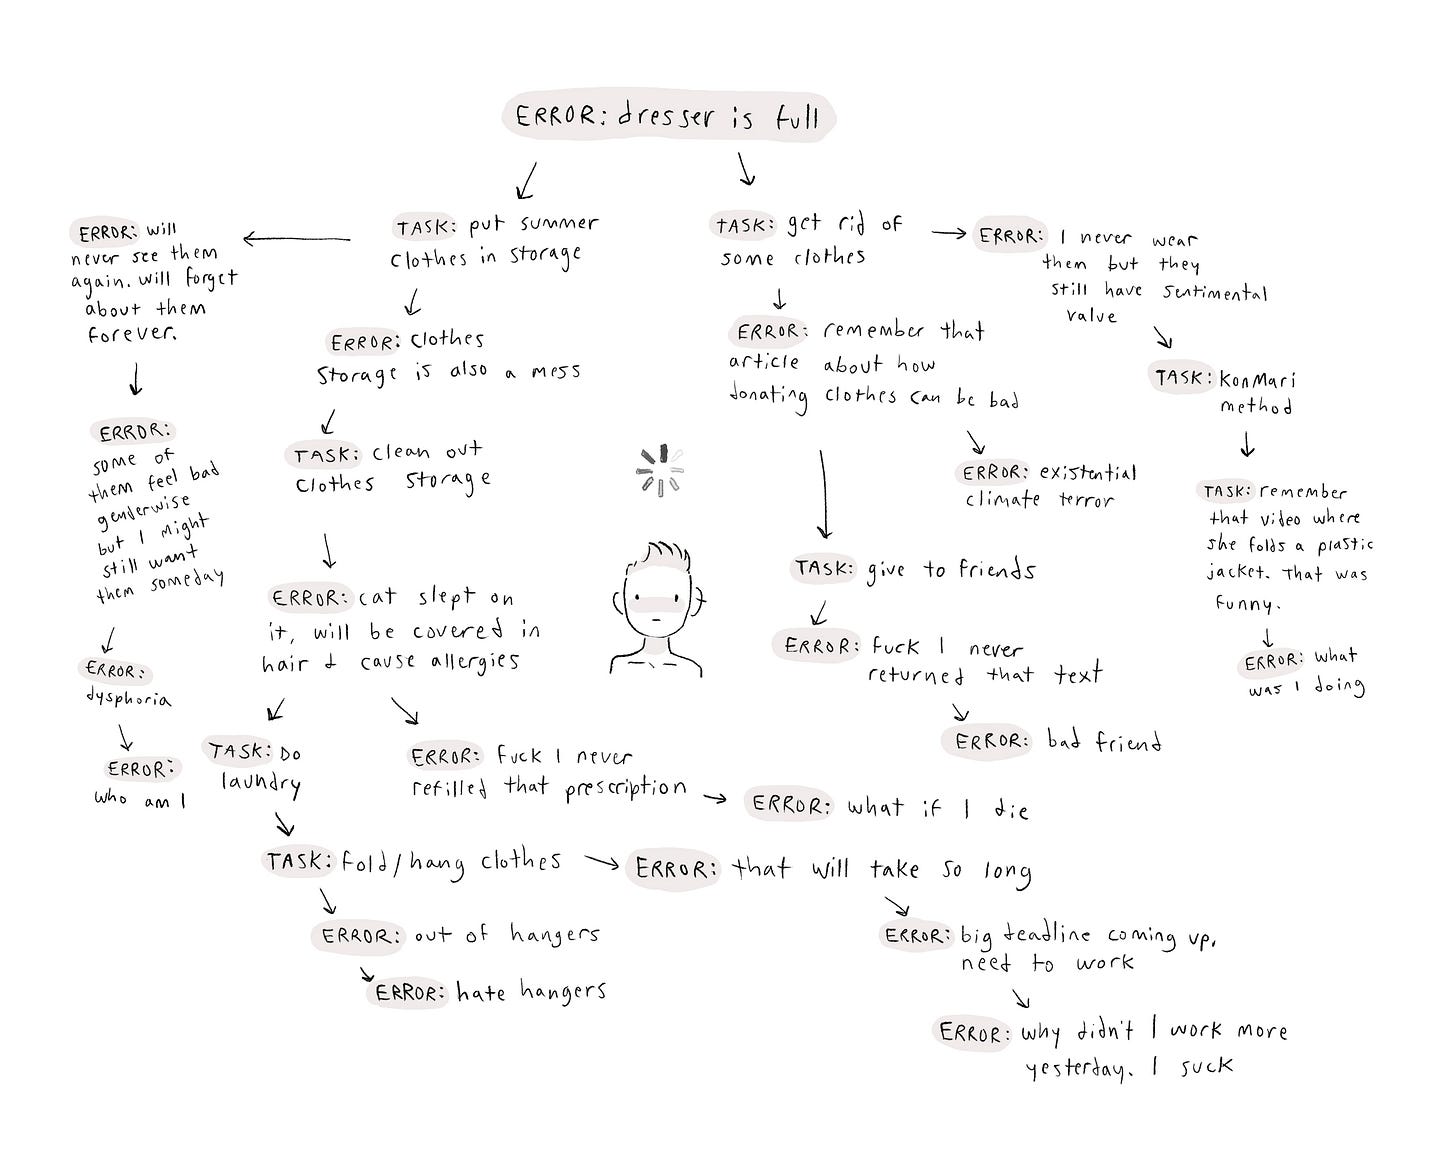 ERROR: dresser is full
ERROR: will
never see them
again. will forget
about them
forever.
ERROR:
some of
them feel bad
genderwise
but I might
still want
them someday
ERROR:
dysphoria
ERROR:
who am I
TASK: put summer
clothes in storage
ERROR: clothes
storage is also a mess
TASK: clean out
clothes storage
ERROR: cat slept on
it, will be covered in
hair & cause allergies
TASK: Do
laundry
ERROR: fuck I never
refilled that prescription
ERROR: what if I die
TASK: fold/hang clothes
ERROR: that will take so long
ERROR: out of hangers
ERROR: hate hangers
ERROR: big deadline coming up,
need to work
ERROR: why didn't I work more
yesterday. I suck
TASK: get rid of
some clothes
ERROR: remember that
article about how
donating clothes can be bad
ERROR: existential
climate terror
TASK: give to friends
ERROR: fuck I never
returned that text
ERROR: bad friend
ERROR: I never wear
them but they
still have sentimental
value
TASK: KonMari
method
TASK: remember
that video where
she folds a plastic
jacket. That was
funny.
ERROR: what
was I doing